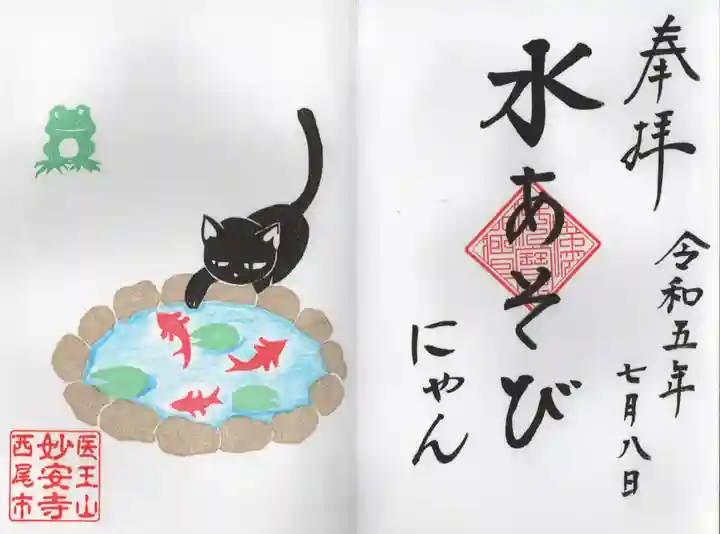 奉拝
令和五年
七月八日
水あそび
にゃん
医王山
妙安寺
西尾市